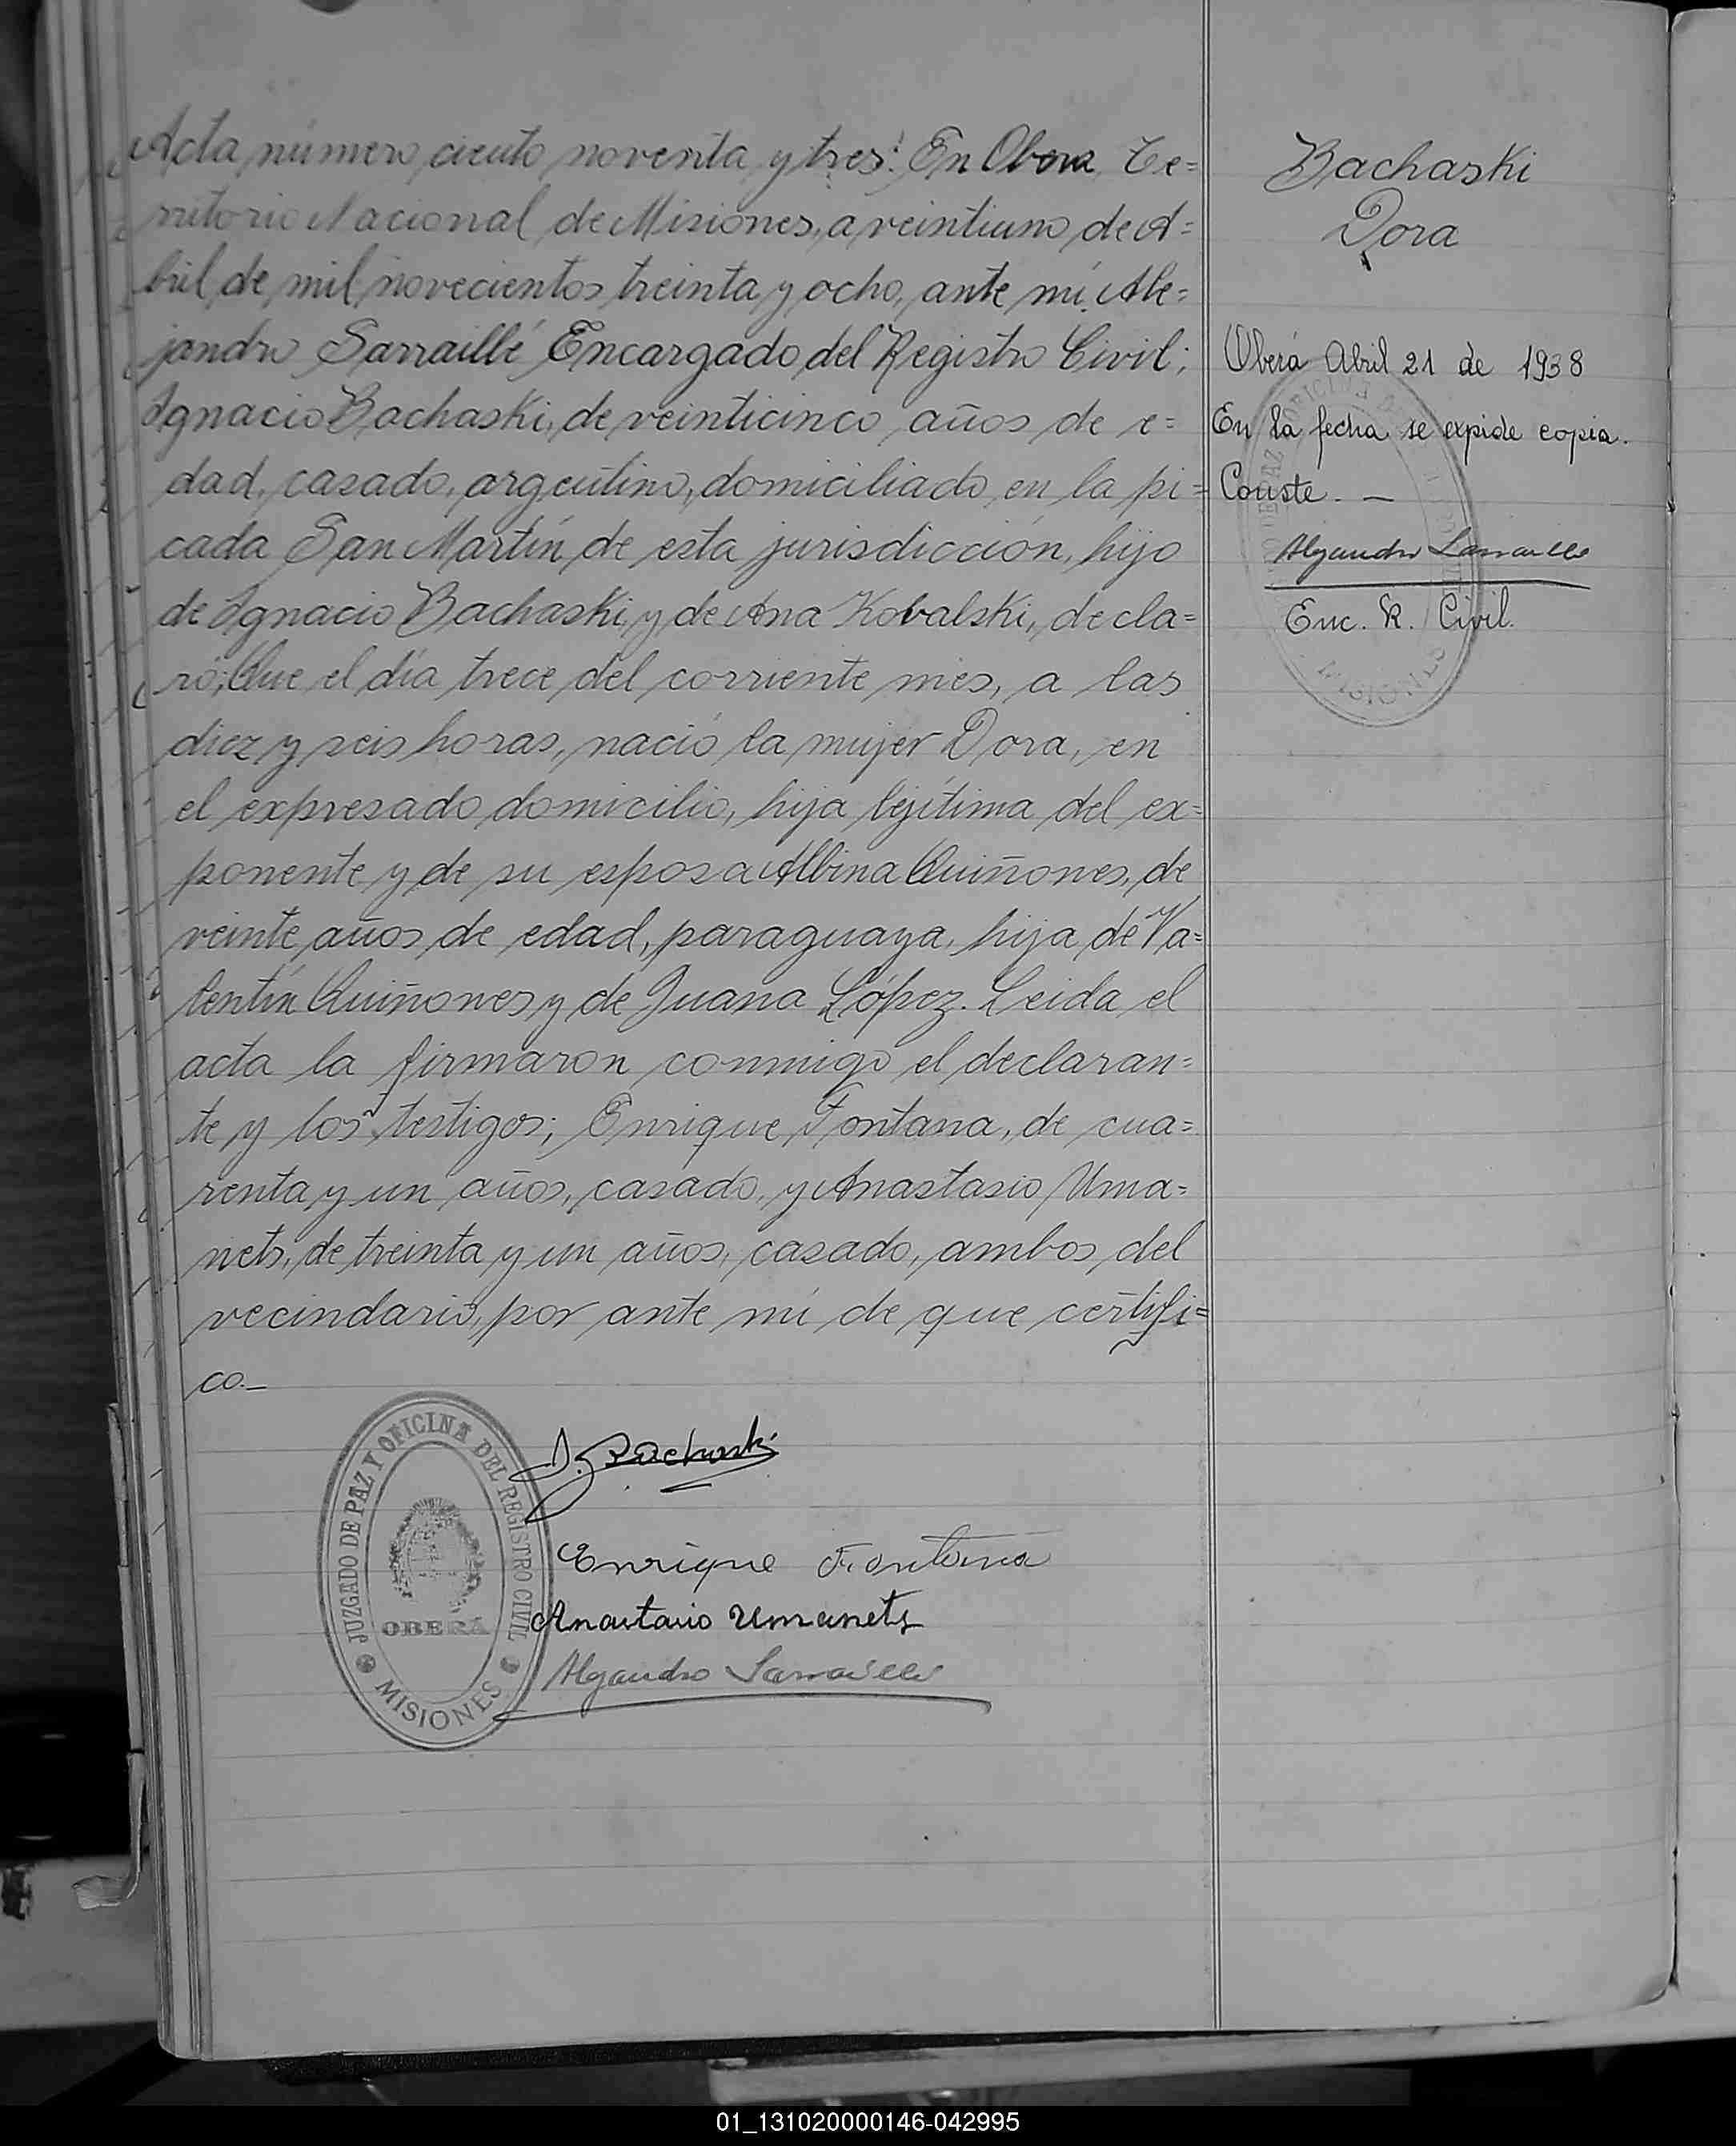 Acta número ciento noventa y tres: En Obera Te=
rritorio Nacional de Misiones, a veintiuno de A=
bril de mil novecientos treinta y ocho, ante mí Ale=
jandro Sarraillé Encargado del Registro Civil;
Ignacio Bachaski, de veinticinco años de e=
dad, casado, argentino, domiciliado en la pi=
cada San Martín de esta jurisdicción, hijo
de Ignacio Bachaski y de Ana Kobalski, decla=
ró; Que el día trece del corriente mes, a las
diez y seis horas, nació la mujer Dora, en
el expresado domicilio, hija lejítima del ex=
ponente y de su esposa Albina Quiñones, de
veinte años de edad, paraguaya, hija de Va=
lentín Quiñones y de Juana López. Leida el
acta la firmaron conmigo el declaran=
te y los testigos; Enrique Fontana, de cua=
renta y un años, casado, y Anastasio Uma=
nets, de treinta y un años, casado, ambos del
vecindario, por ante mí de que certifi=
co.—
I. Bachaski
Enrique Fontana
Anastasio Umanets
Alejandro Sarraillé
JUZGADO DE PAZ Y OFICINA DEL REGISTRO CIVIL
OBERÁ
MISIONES
Bachaski
Dora
Oberá Abril 21 de 1938
En la fecha se expide copia.
Conste. —
Alejandro Sarraillé
Enc. R. Civil.
MISIONES
01_131020000146-042995